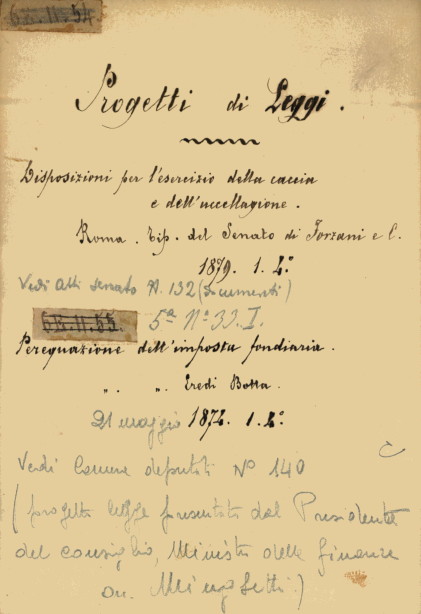 6B.11.54
Progetti di Leggi.
Disposizioni per l'esercizio della caccia
e dell'uccellagione.
Roma. Tip. del Senato di Forzani e C.
1879. 1. 4.º
Vedi Atti Senato N. 132 (Documenti)
6B.11.55.
5ª Nº 33. I.
Perequazione dell'imposta fondiaria.
" " Eredi Botta.
21 maggio 1874. 1. 4.º
Vedi Camera deputati Nº 140
(progetto legge presentato dal Presidente
del consiglio, Ministro delle finanze
On. Minghetti.)